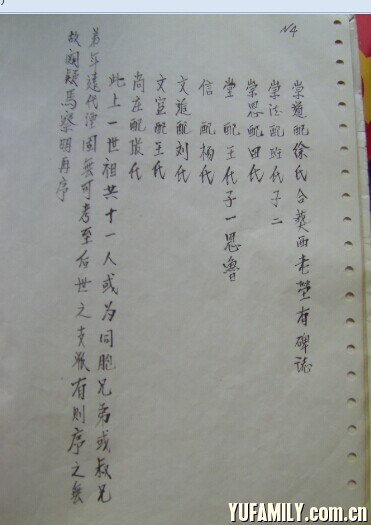 N4
堂道配徐氏合葬西老塋有碑誌
堂法配班氏子二
堂思配田氏
堂 配王氏子一思魯
信 配杨氏
文進配刘氏
文宣配王氏
尚左配張氏
此上一世祖共十一人或为同胞兄弟或叔兄
弟年遠代湮固無可考至后世之支派有則序之無
故阙疑馬蔡明再序
YUFAMILY.com.cn